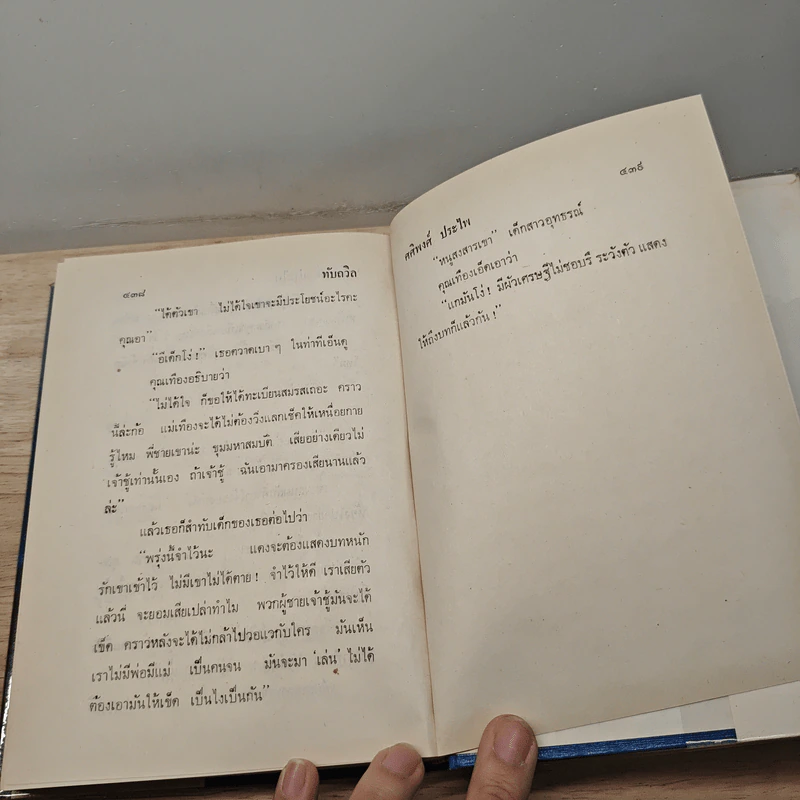 ๔๓๘ ทับถวิล
"ได้ตัวเขา ไม่ได้ใจเขาจะมีประโยชน์อะไรคะ
คุณอา"
"อีเด็กโง่ !" เธอตวาดเบา ๆ ในท่าทีเอ็นดู
คุณเทืองอธิบายว่า
"ไม่ได้ใจ ก็ขอให้ได้ทะเบียนสมรสเถอะ คราว
นี้ล่ะก้อ แม่เทืองจะได้ไม่ต้องวิ่งแลกเช็คให้เหนื่อยกาย
รู้ไหม พี่ชายเขาน่ะ ขุมมหาสมบัติ เสียอย่างเดียวไม่
เจ้าชู้เท่านั้นเอง ถ้าเจ้าชู้ ฉันเอามาครองเสียนานแล้ว
ล่ะ"
แล้วเธอก็สำทับเด็กของเธอต่อไปว่า
"พรุ่งนี้จำไว้นะ แตงจะต้องแสดงบทหนัก
รักเขาเข้าไว้ ไม่มีเขาไม่ได้ตาย ! จำไว้ให้ดี เราเสียตัว
แล้วนี่ จะยอมเสียเปล่าทำไม พวกผู้ชายเจ้าชู้มันจะได้
เข็ด คราวหลังจะได้ไม่กล้าไปวอแวกับใคร มันเห็น
เราไม่มีพ่อมีแม่ เป็นคนจน มันจะมา 'เล่น' ไม่ได้
ต้องเอามันให้เข็ด เป็นไงเป็นกัน"
ศศิพงศ์ ประไพ ๔๓๙
"หนูสงสารเขา" เด็กสาวอุทธรณ์
คุณเทืองเอ็ดเอาว่า
"แกมันโง่ ! มีผัวเศรษฐีไม่ชอบรึ ระวังตัว แสดง
ให้ถึงบทก็แล้วกัน !"